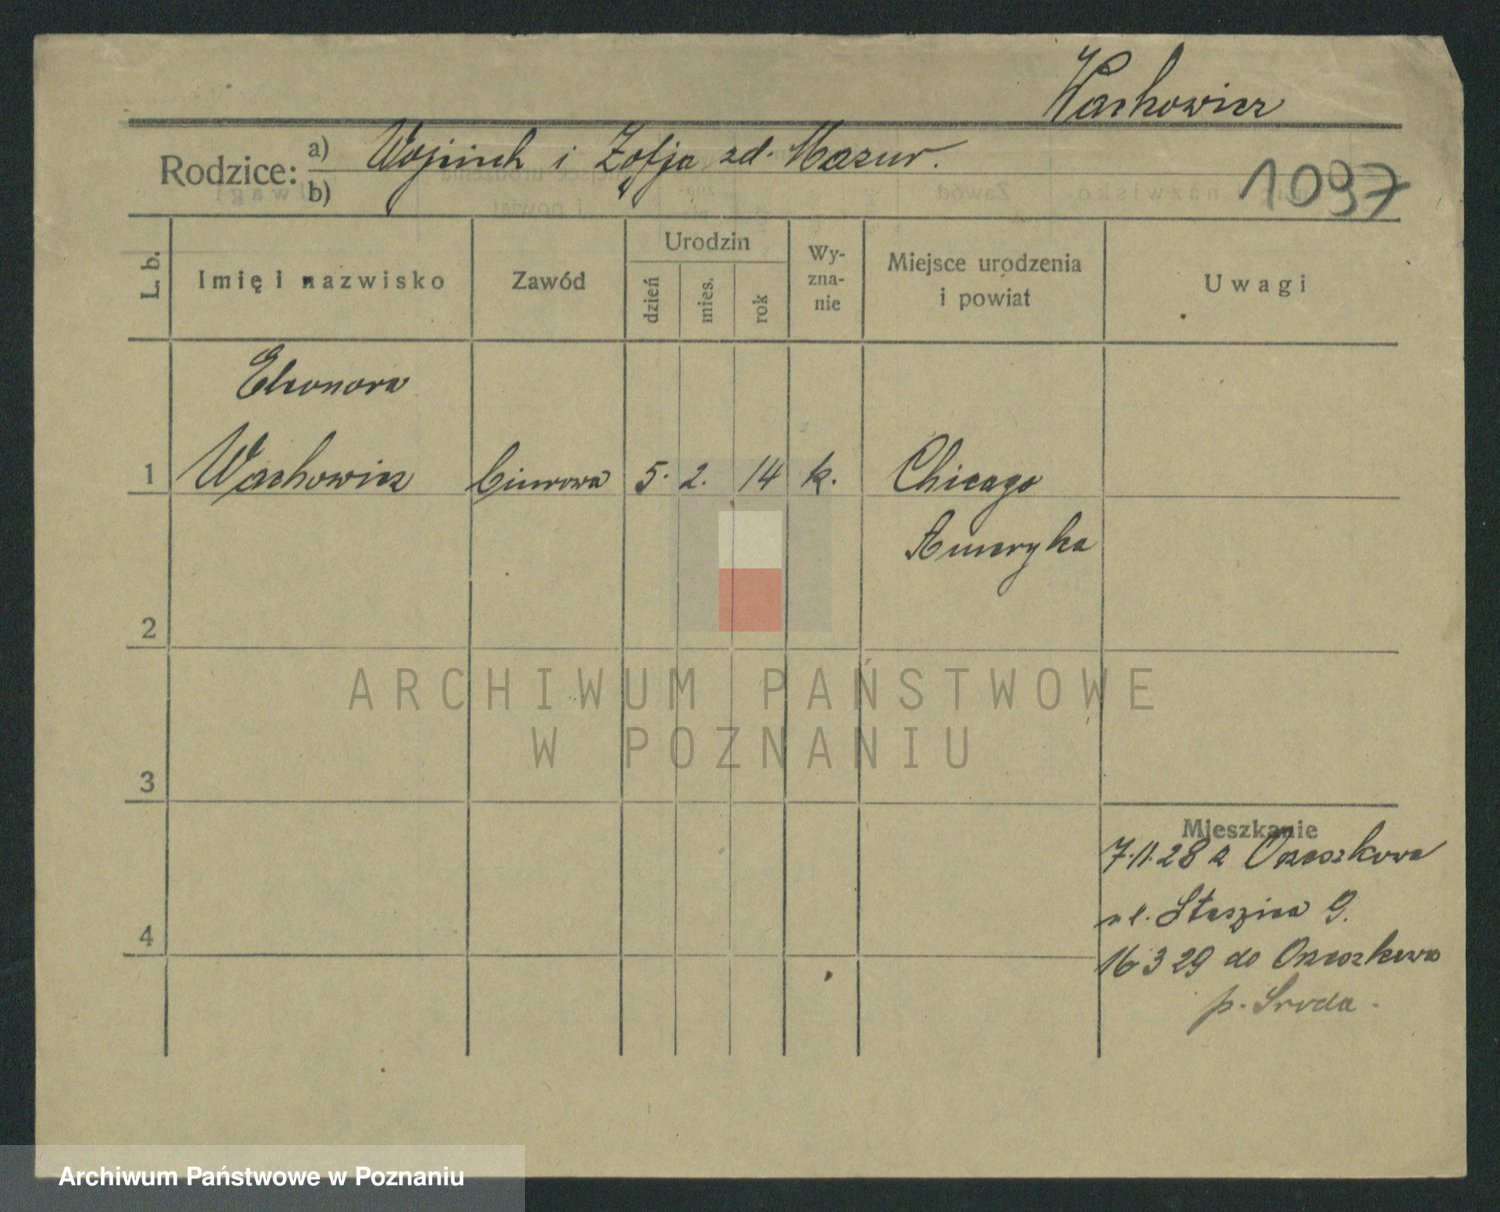 Wachowicz
Rodzice: a) Wojciech i Zofja zd. Mazur.
b)
1097
L. b.
Imię i nazwisko
Zawód
Urodzin
dzień
mies.
rok
Wy-
zna-
nie
Miejsce urodzenia
i powiat
Uwagi
Eleonora
1 Wachowicz biurowa 5. 2. 14 k. Chicago
Ameryka
2
3
4
Mieszkanie
7.11.28 z Orzeszkowa
ul. Staszica 9.
16 3 29 do Orzeszkowa
p. Sroda.
ARCHIWUM PAŃSTWOWE
W POZNANIU
Archiwum Państwowe w Poznaniu